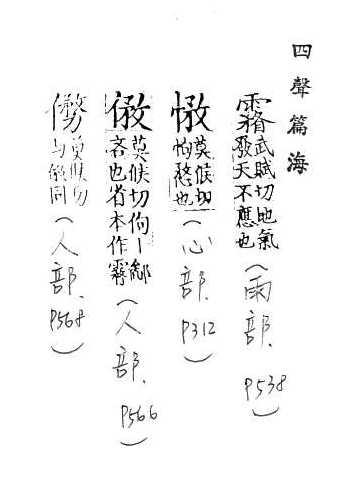 四聲篇海
武賦切地氣
發天不應也
(雨部. P538)
莫候切
怐愗也
(心部. P312)
㑄
莫候切佝丨鄙
吝也省本作霿
(人部. P566)
莫候切
与㑄同
(人部. P568)